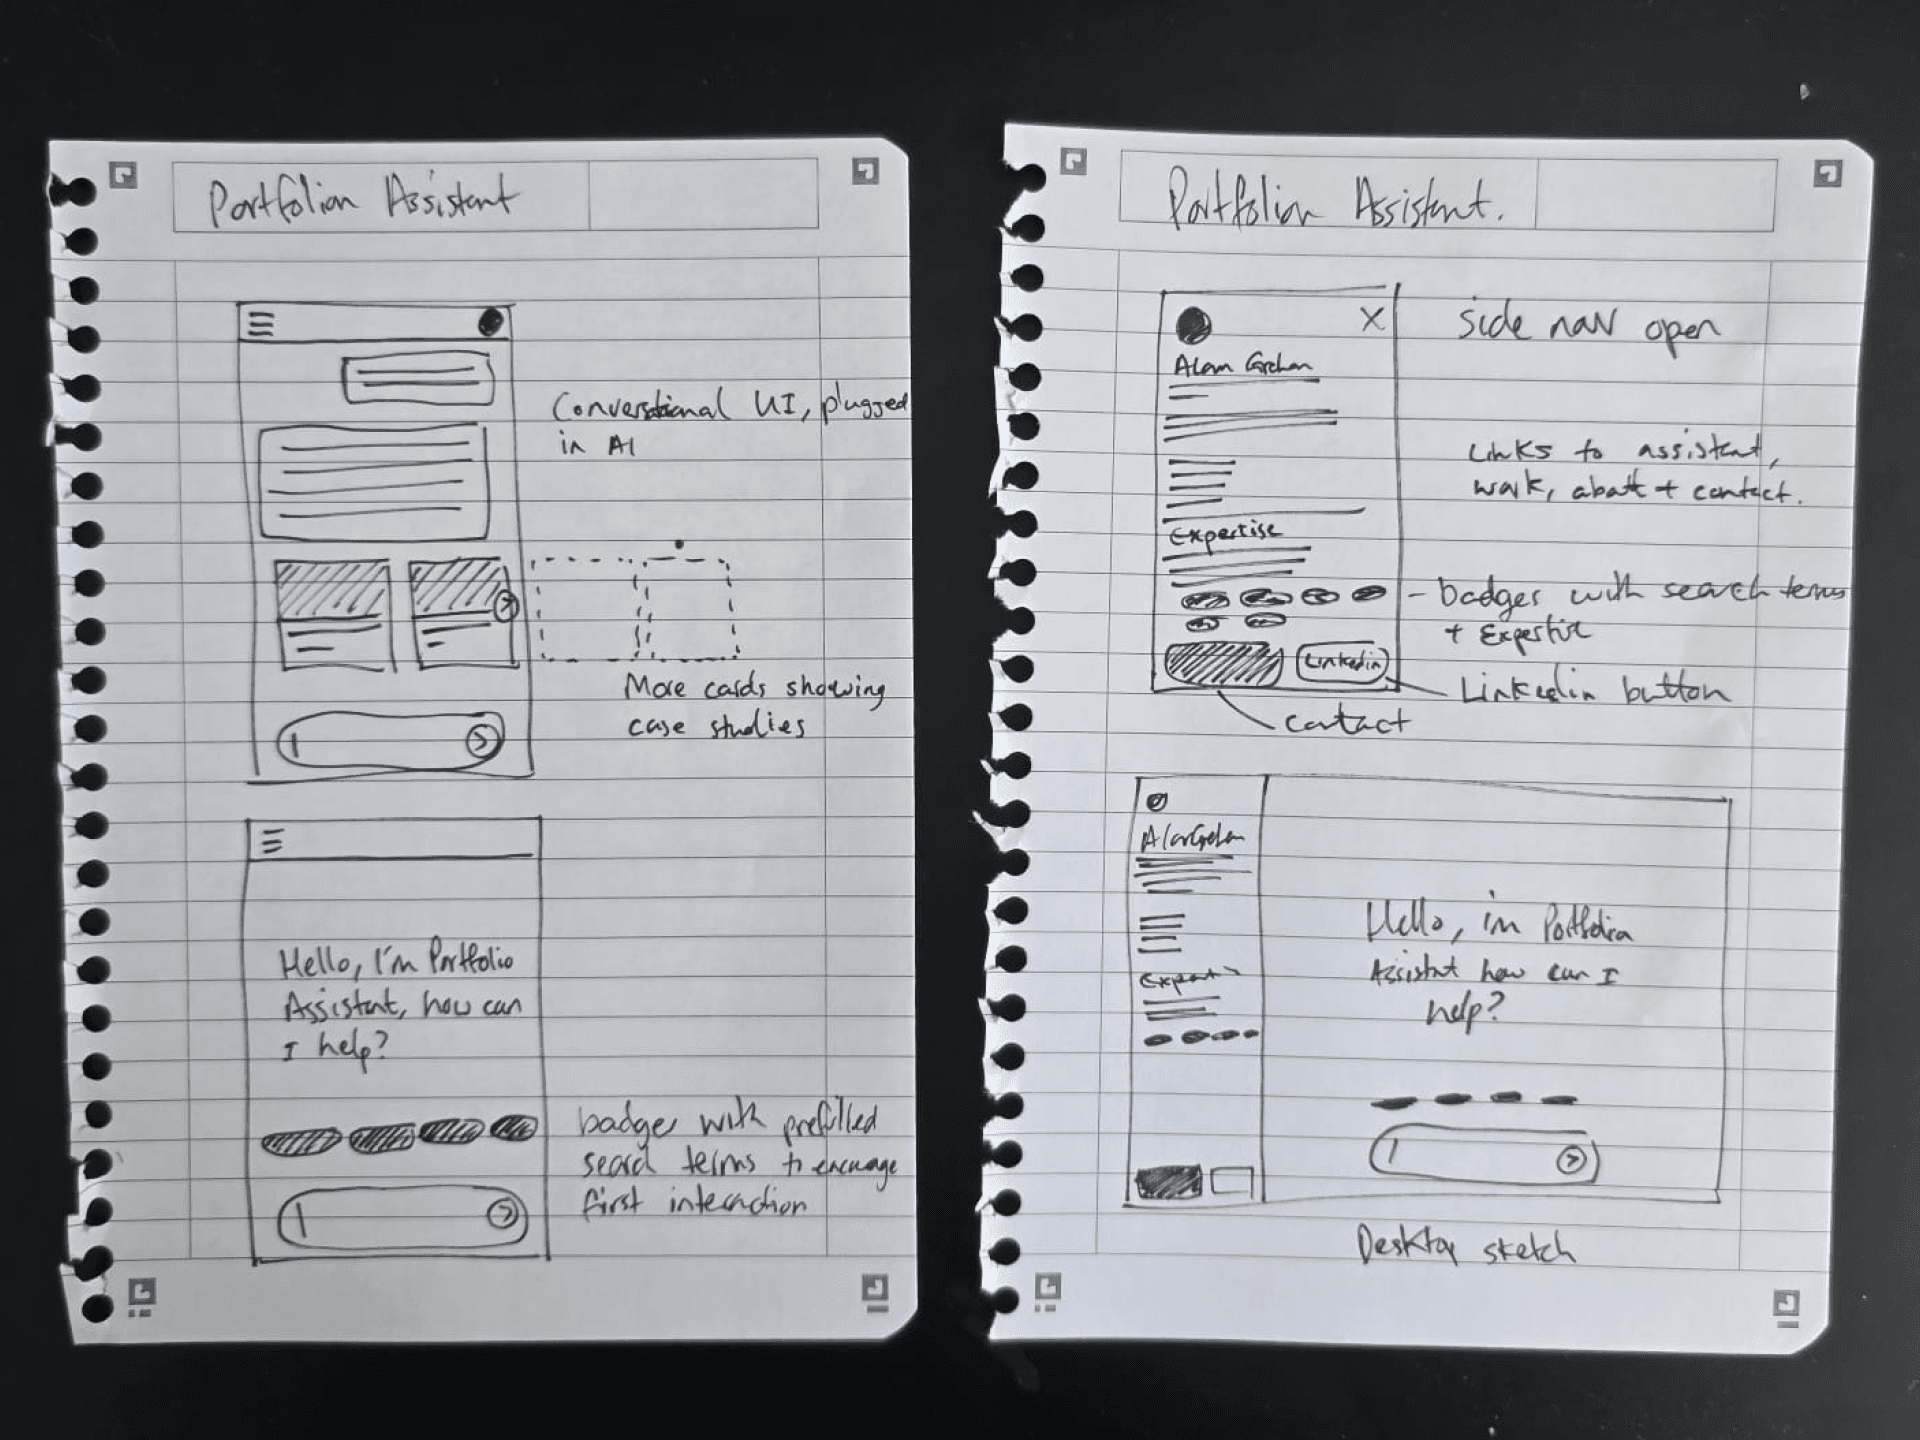 Portfolion Assistant
Conversational UI, plugged
in AI
More cards showing
case studies
Hello, I'm Portfolio
Assistant, how can
I help?
badge with prefilled
search terms to encourage
first interaction
Portfolion Assistant.
side nav open
X
Alan
Links to assistant,
work, about + contact.
Expertise
- badges with search terms
+ Expertise
Linkedin
Linkedin button
contact
Hello, i'm Portfolio
Assistant how can I
help?
Desktop sketch